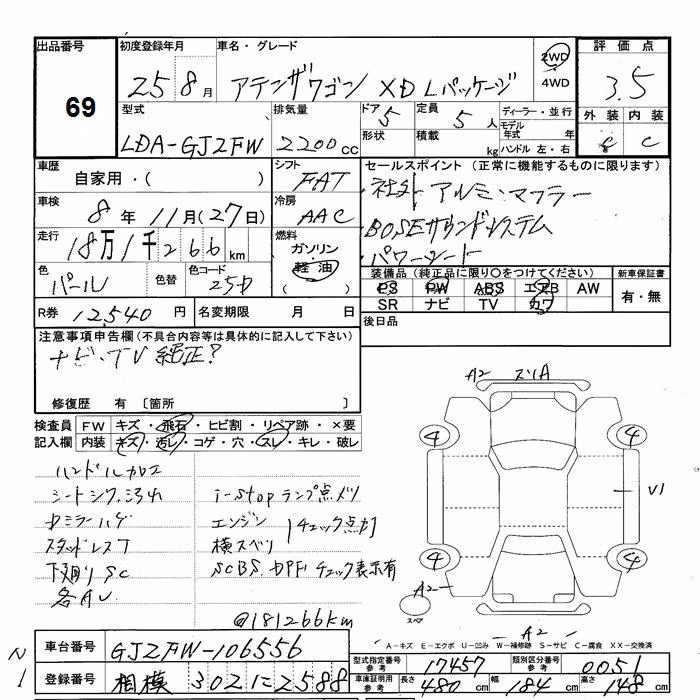 出品番号 初度登録年月 車名・グレード 2WD 評価点
69 25 8月 アテンザワゴン XD Lパッケージ 4WD 3.5
型式 排気量 ドア 5 定員 5人 ディーラー・並行 外装 内装
LDA-GJ2FW 2200cc 形状 積載 kg モデル年式 年 C C
ハンドル 左・右
車歴 シフト セールスポイント(正常に機能するものに限ります)
自家用・( ) FAT 社外アルミ・マフラー
車検 8年11月(27日) 冷房 AAC BOSEサウンドシステム
走行 18万1千266km 燃料 ガソリン・軽油 ( ) パワーシート
色 パール 色替 色コード 25D
装備品(純正品に限り〇をつけてください) 新車保証書
PS PW ABS エアB AW 有・無
SR ナビ TV カワ
R券 12,540円 名変期限 月 日 後日品
注意事項申告欄(不具合内容等は具体的に記入して下さい)
ナビ・TV 純正?
修復歴 有〔箇所 〕
A2 スリA
検査員 FW キズ・飛石・ヒビ割・リペア跡・×要
記入欄 内装 キズ・汚レ・コゲ・穴・スレ・キレ・破レ
4 4
ハンドルカロエ
i-stopランプ点メツ
エンジン チェック点灯
スタッドレス 横スベリ
下廻りSC SCBS.DPFチェック表示有
各AU
V1
4 4
A2
スペア
@181266km
A2
A-キズ E-エクボ U-凹み W-補修跡 S-サビ C-腐食 XX-交換済
車台番号 GJ2FW-106556
型式指定番号 参考 17457 類別区分番号 参考 0051
N1 登録番号 相模 302 に 2588
車庫証明用 参考 長さ 480cm 幅 184cm 高さ 148cm